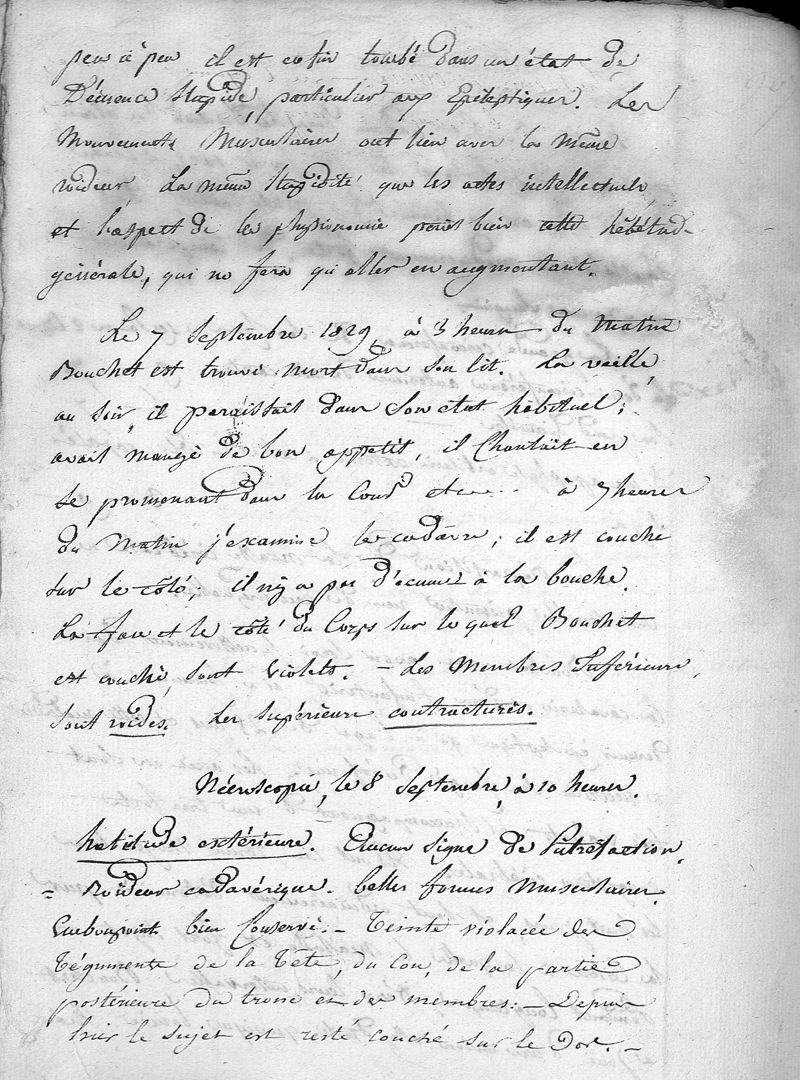 peu à peu il est enfin tombé dans un état de
Démence stupide, particulier aux Epileptiques. Les
Mouvements Musculaires ont lieu avec la même
roideur, la même stupidité que les actes intellectuels,
et l'aspect de la physionomie peint bien cette hébétude
générale, qui ne fera qu'aller en augmentant.
Le 7 Septembre 1829, à 3 heures du Matin
Bouchet est trouvé mort dans son lit. La veille,
au soir, il paraissait dans son état habituel;
avait mangé de bon appetit, il Chantait en
se promenant dans la Cour etc. à 7 heures
du Matin j'examine le cadavre; il est couché
sur le côté; il n'y a pas d'écume à la bouche.
La face et le côté du Corps sur lequel Bouchet
est couché, sont violets. - Les Membres Inférieurs,
sont roides. Les supérieurs contracturés.
Nécroscopie, le 8 Septembre, à 10 heures.
habitude extérieure. Aucun signe de Putréfaction.
- Roideur cadavérique. belles formes Musculaires.
Embonpoint bien Conservé. - Teinte violacée des
Téguments de la Tête, du Cou, de la partie
postérieure du tronc et des membres: - Depuis
hier le sujet est resté couché sur le Dos. -